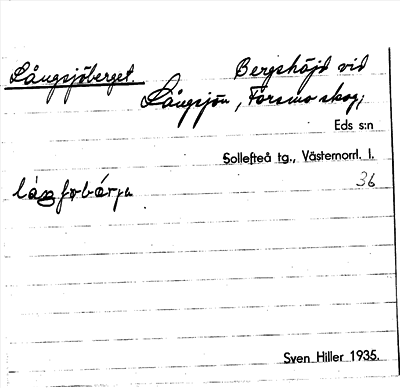 Långsjöberget. Bergshöjd vid
Långsjön, Forsmo skog,
Eds s:n
Sollefteå tg., Västernorrl. l.
36
Sven Hiller 1935.